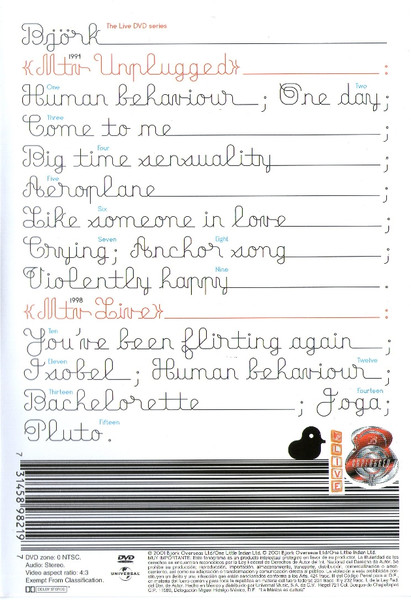 Björk The Live DVD series
1994
«Mtv Unplugged» :
One Two
Human behaviour ; One day ;
Three
Come to me ;
Four
Big time sensuality ;
Five
Aeroplane ;
Six
Like someone in love ;
Seven Eight
Crying ; Anchor song ;
Nine
Violently happy .
1998
«Mtv Live» :
Ten
You've been flirting again ;
Eleven Twelve
Isobel ; Human behaviour ;
Thirteen Fourteen
Bachelorette ; Joga ;
Fifteen
Pluto .
LIVE
7 31458 98219 7
DVD zone: 0 NTSC.
Audio: Stereo.
Video aspect ratio: 4:3
Exempt From Classification.
DVD
UNIVERSAL
© 2001 Björk Overseas Ltd/One Little Indian Ltd. ℗ 2001 Björk Overseas Ltd/One Little Indian Ltd.